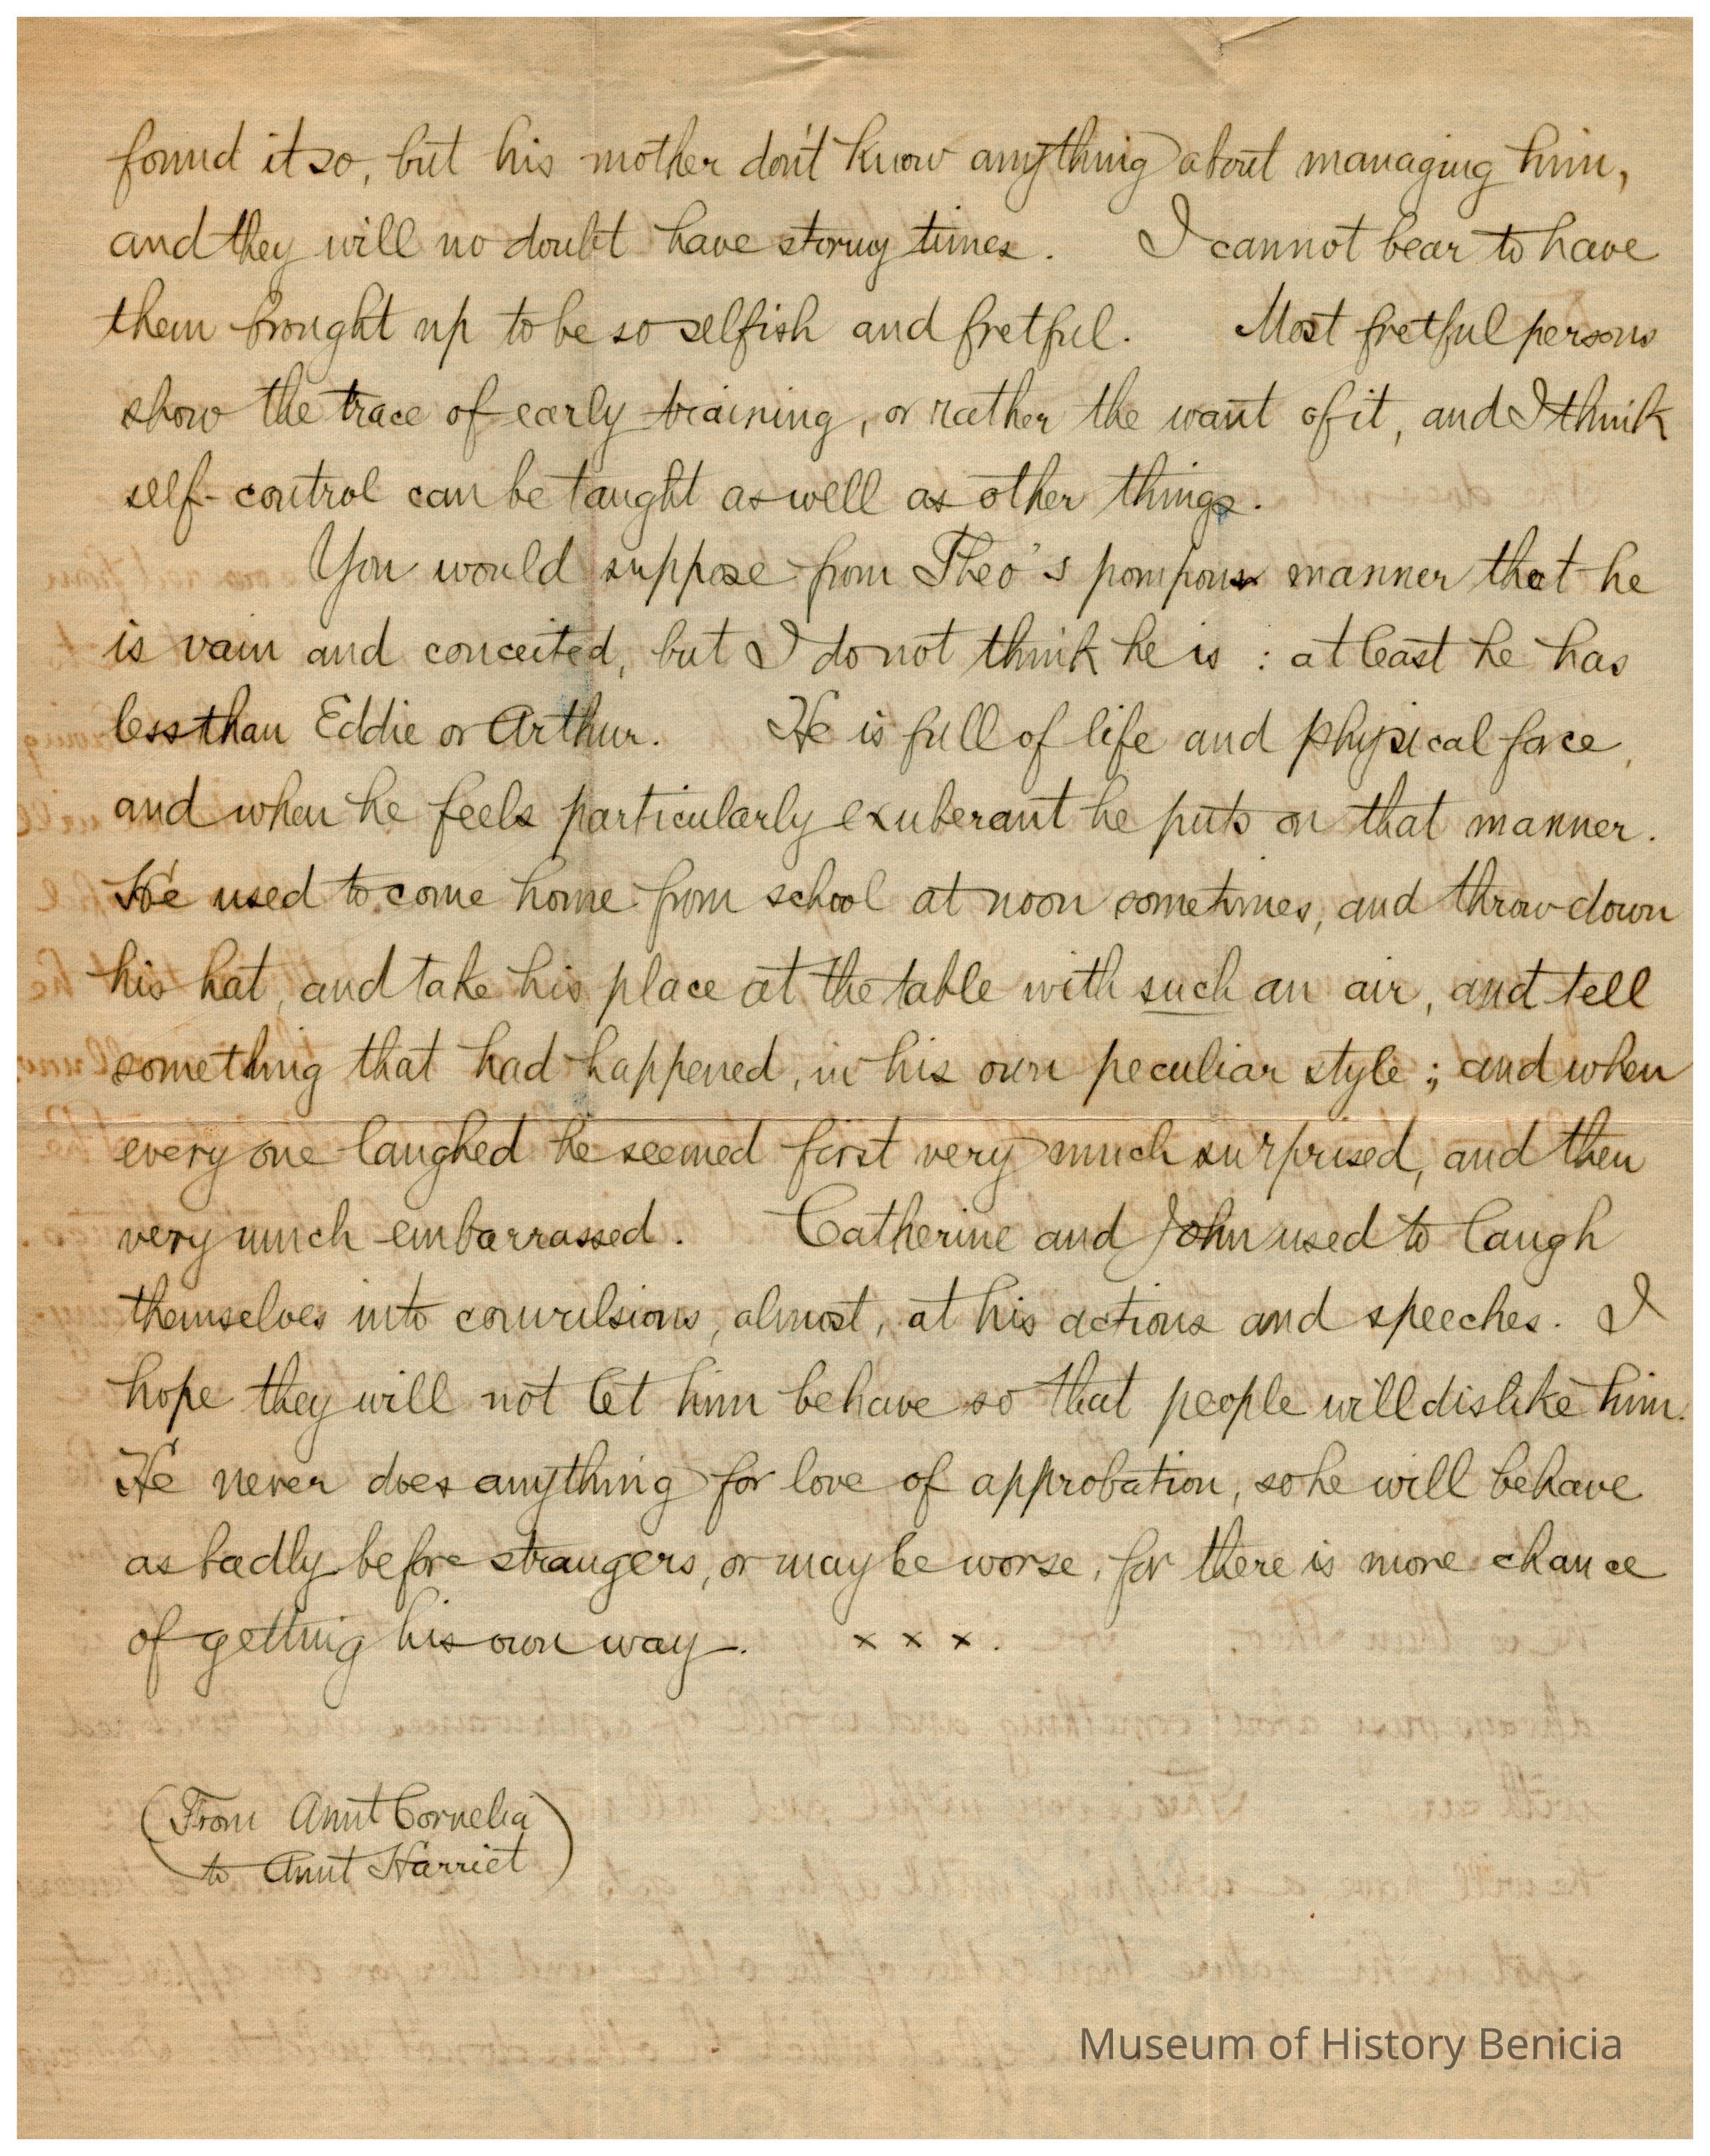 found it so, but his mother don't know anything about managing him,
and they will no doubt have stormy times. I cannot bear to have
them brought up to be so selfish and fretful. Most fretful persons
show the trace of early training, or rather the want of it, and I think
self-control can be taught as well as other things.
You would suppose from Theo's pompous manner that he
is vain and conceited, but I do not think he is: at least he has
less than Eddie or Arthur. He is full of life and physical force,
and when he feels particularly exuberant he puts on that manner.
He used to come home from school at noon sometimes, and throw down
his hat, and take his place at the table with such an air, and tell
something that had happened, in his own peculiar style; and when
every one laughed he seemed first very much surprised, and then
very much embarrassed. Catherine and John used to laugh
themselves into convulsions, almost, at his actions and speeches. I
hope they will not let him behave so that people will dislike him.
He never does anything for love of approbation, so he will behave
as badly before strangers, or may be worse, for there is more chance
of getting his own way. x x x.
(From Aunt Cornelia
to Aunt Harriet)
Museum of History Benicia